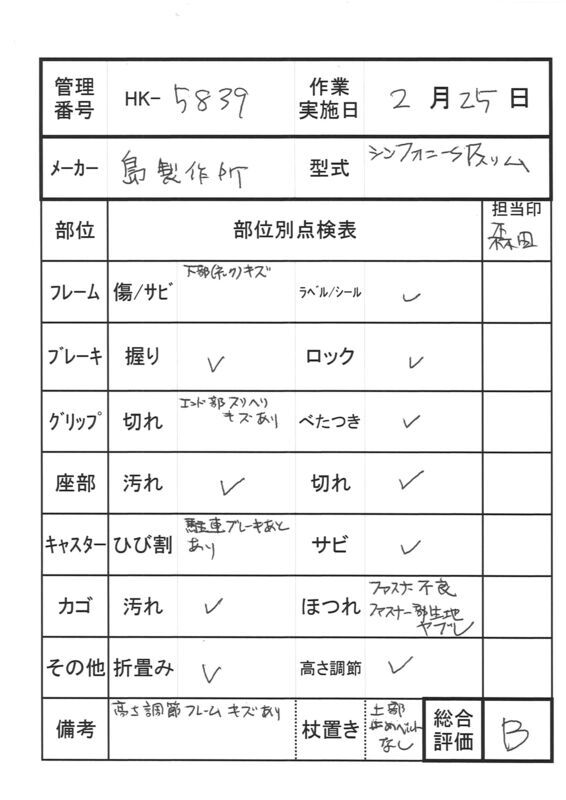 管理番号 HK-5839 作業実施日 2月25日
メーカー 島製作所 型式 シンフォニーSPスリム
部位 部位別点検表 担当印
森田
フレーム 傷/サビ 下部(ネック)キズ ラベル/シール ✓
ブレーキ 握り ✓ ロック ✓
グリップ 切れ エンド部スリヘリ
キズあり べたつき ✓
座部 汚れ ✓ 切れ ✓
キャスター ひび割 駐車ブレーキあと
あり サビ ✓
カゴ 汚れ ✓ ほつれ ファスナー不良
ファスナー部生地
ヤブレ
その他 折畳み ✓ 高さ調節 ✓
備考 高さ調節フレームキズあり 杖置き 上部
止めベルト
なし 総合評価 B